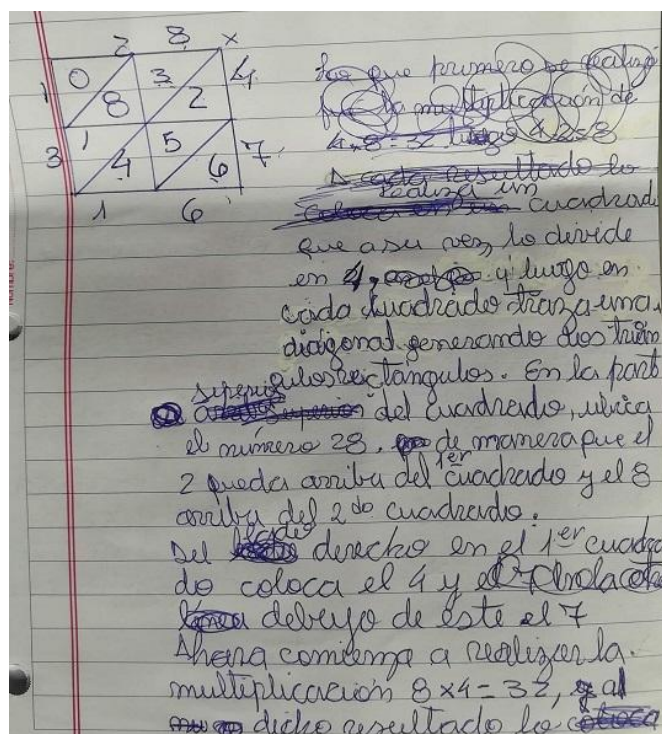 2 8 x
1 0 3 4
8 2
3 1 5 7
4 6
1 6
Lo que primero se realizó
fue la multiplicación de
4x8=32 luego 4x2=8
A cada resultado lo
realiza un
cuadrad
que a su vez, lo divide
en 4, y luego en
cada cuadrado traza una
diagonal generando dos trián
gulos rectángulos. En la part
superior
del cuadrado, ubica
el número 28, de manera que el
2 queda arriba del 1er cuadrado y el 8
arriba del 2do cuadrado.
Del lado derecho en el 1er cuadra
do coloca el 4 y
debajo de éste el 7
Ahora comienza a realizar la
multiplicación 8x4=32, al
dicho resultado lo coloca